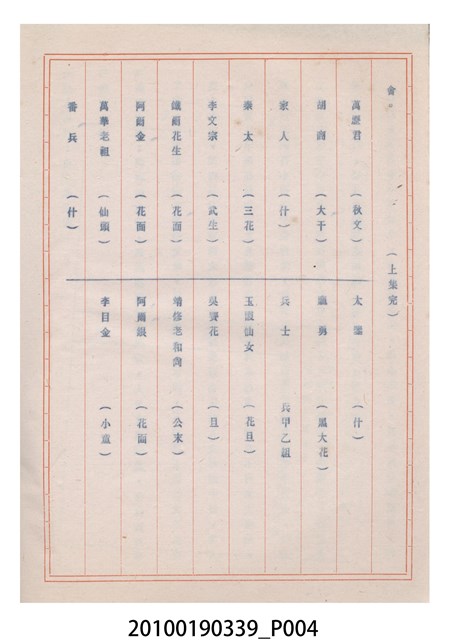 會。 (上集完)
萬歷君 (秋文) 太監 (什)
(大干) 勇 (黑大花)
家人 (什) 兵士 兵甲乙組
太 (三花) 仙女 (花旦)
李文宗 (武生) 吳賽花 (旦)
爾花生 (花面) 靖修老和尚 (公末)
阿爾金 (花面) 阿爾銀 (花面)
萬華老祖 (仙頭) 李目金 (小童)
番兵 (什)
20100190339_P004